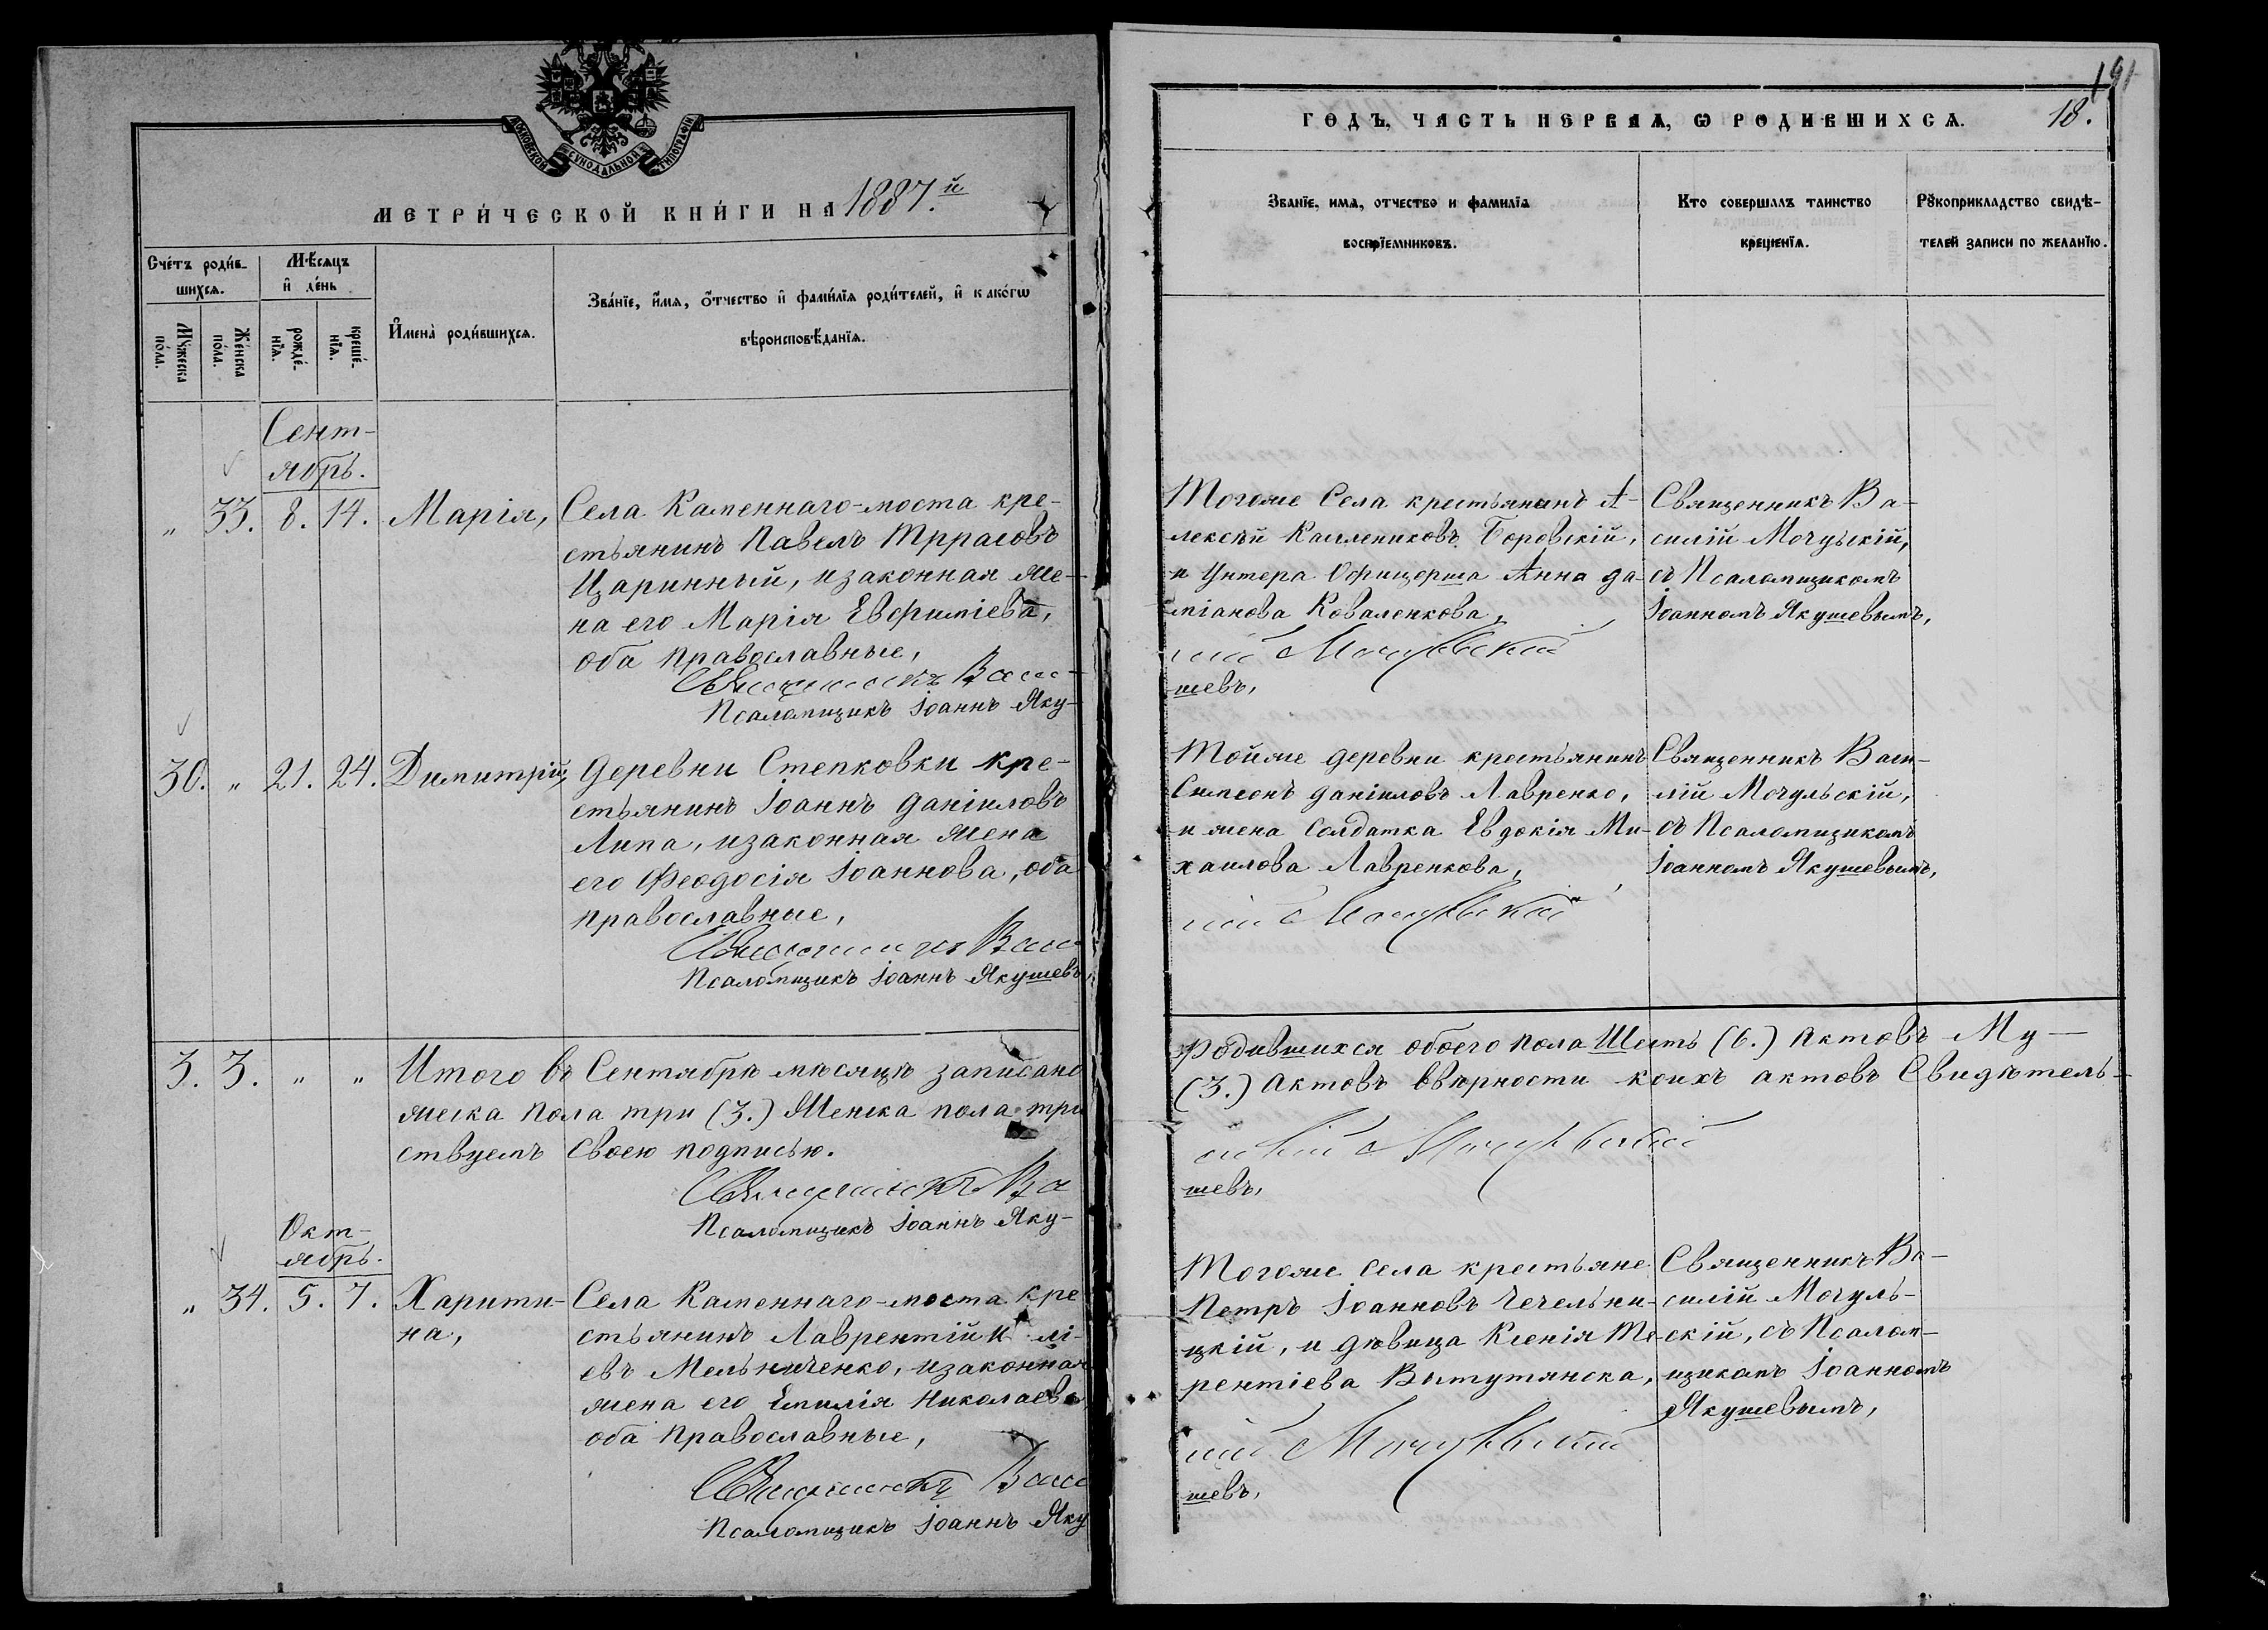 МОСКОВСКОЙ СУНОДАЛЬНОЙ ТИПОГРАФІИ
МЕТРИ́ЧЕСКОЙ КНИ́ГИ НА 1887.й
Сче́тъ роди́в-
шихсѧ.
Мѣ́сѧцъ
и҆ де́нь
Мꙋ́жеска
по́ла.
Же́нска
по́ла.
рожде́-
нїѧ.
креще́-
нїѧ.
И҆мена̀ роди́вшихсѧ.
Зва́нїе, и҆́мѧ, ѻ҆́тчество и҆ фами́лїѧ роди́телей, и҆ како́гѡ
вѣроисповѣ́данїѧ.
Сент-
ябрь.
„ 33. 8. 14. Марія,
Села Каменнаго-моста кре-
стьянинъ Павелъ Тррасовъ
Царинный, изаконная же-
на его Марія Евфиміева,
оба православные,
Священникъ Васи-
Псаломщикъ Іоаннъ Яку-
30. „ 21. 24. Димитрій,
Деревни Степковки кре-
стьянинъ Іоаннъ Даніиловъ
Липа, изаконная жена
его Феодосія Іоаннова, оба
православные,
Священникъ Васи
Псаломщикъ Іоаннъ Якушевъ
3. 3. „ „ Итого въ Сентябрѣ мѣсяцѣ записано
жеска пола три (3.) Женска пола три
ствуемъ Своею подписью.
Священникъ Ва
Псаломщикъ Іоаннъ Яку-
Окт-
ябрь.
„ 34. 5. 7. Харити-
на,
Села Каменнаго-моста кре
стьянинъ Лаврентій И лі-
евъ Мельниченко, изаконная
жена его Емилія Николаева
оба православные,
Священникъ Васи
Псаломщикъ Іоаннъ Яку
191
ГОДЪ, ЧАСТЬ ПЕРВАЯ, Ѡ РОДИВШИХСѦ.
18.
Званїе, имѧ, отчество и фамилїѧ
воспрїемниковъ.
Кто совершалъ таинство
крещенїѧ.
Рꙋкоприкладство свидѣ-
телей записи по желанїю.
Тогоже Села крестьянинъ А-
лексѣй Каллениковъ Боровскій,
и Унтера Офицерша Анна Да-
міанова Коваленкова,
лій Мочульскій
шевъ,
Священникъ Ва-
силій Мочульскій,
съ Псаломщикомъ
Іоанномъ Якушевымъ,
Тойже деревни крестьянинъ
Симеонъ Даніиловъ Лавренко,
и жена Солдатка Евдокія Ми-
хаилова Лавренкова,
лій Мочульскій
Священникъ Васи-
лій Мочульскій,
съ Псаломщикомъ
Іоанномъ Якушевымъ,
Родившихся обоего пола Шесть (6.) Актовъ Му-
(3.) Актовъ ввѣрности коихъ актовъ Свидѣтель-
силій Мочульскій
шевъ,
Тогоже Села крестьяне
Петръ Іоанновъ Чечельни-
цкій, и дѣвица Ксенія Те-
рентіева Витутянска,
лій Мочульскій
шевъ,
Священникъ Ва-
силій Мочуль-
скій, съ Псалом-
щикомъ Іоанномъ
Якушевымъ,